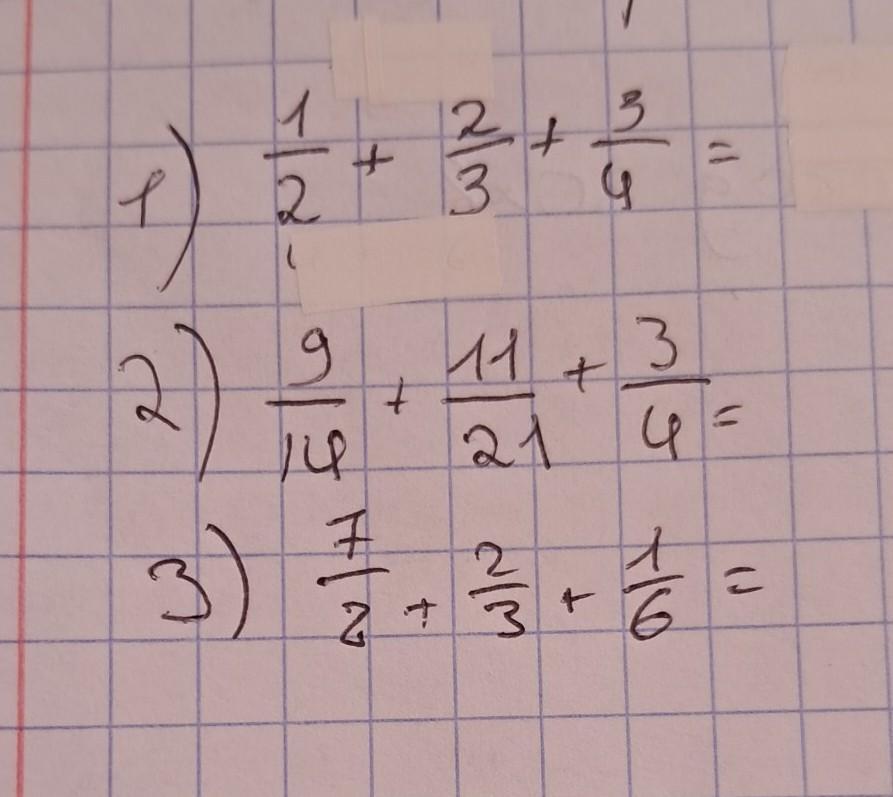 1) 1/2 + 2/3 + 3/4 =
2) 9/14 + 11/21 + 3/4 =
3) 7/2 + 2/3 + 1/6 =